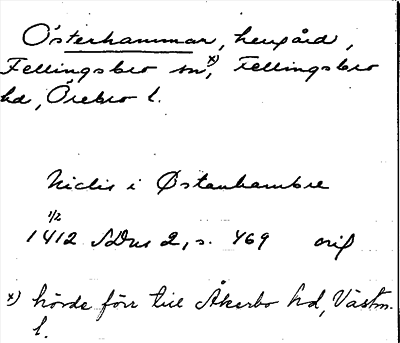 Österhammar, herrgård,
Fellingsbro sn, x) Fellingsbro
hd, Örebro l.
Niclis i Østanhambre
1/2
1412 SDns 2, s. 469 orig
x) hörde förr till Åkerbo hd, Västm.
l.